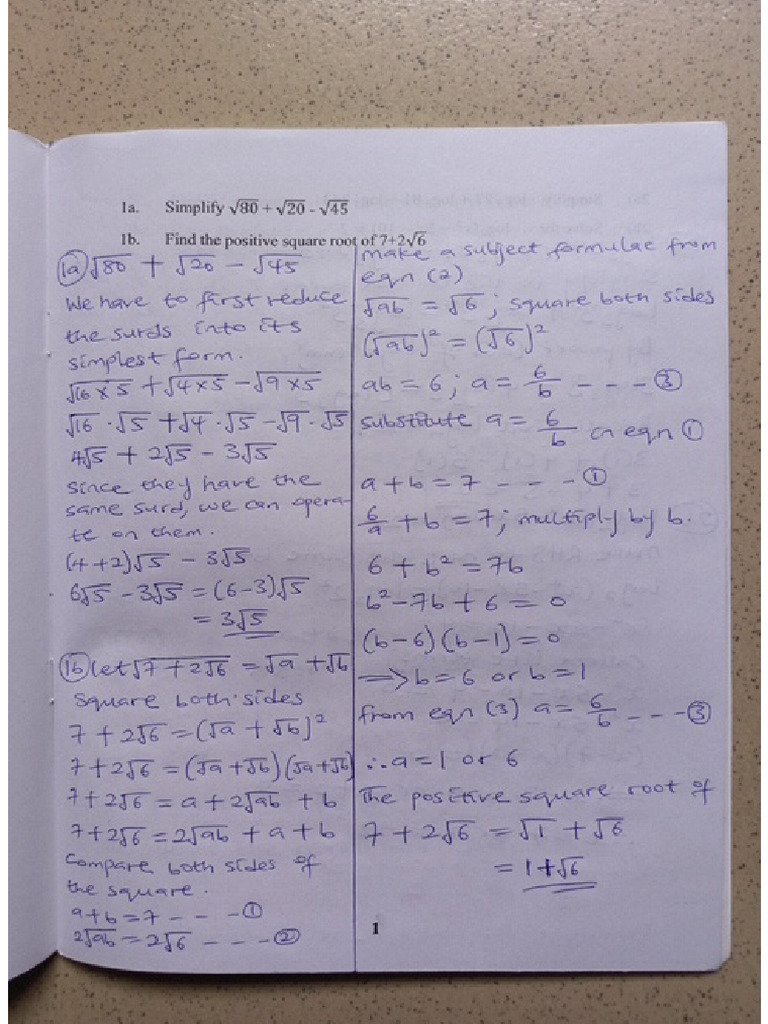 1a. Simplify √80 + √20 - √45
1b. Find the positive square root of 7+2√6
(1a) √80 + √20 − √45
We have to first reduce
the surds into its
simplest form.
√16×5 + √4×5 − √9×5
√16 · √5 + √4 · √5 − √9 · √5
4√5 + 2√5 − 3√5
since they have the
same surd, we can opera-
te on them.
(4+2)√5 − 3√5
6√5 − 3√5 = (6−3)√5
= 3√5
(1b) let √7+2√6 = √a + √b
square both sides
7 + 2√6 = (√a + √b)²
7 + 2√6 = (√a + √b)(√a + √b)
7 + 2√6 = a + 2√ab + b
7 + 2√6 = 2√ab + a + b
Compare both sides of
the square.
a + b = 7 - - - ①
2√ab = 2√6 - - - - ②
make a subject formulae from
eqn (2)
√ab = √6 ; square both sides
(√ab)² = (√6)²
ab = 6 ; a = 6/b - - - - ③
substitute a = 6/b in eqn ①
a + b = 7 - - - - ①
6/a + b = 7 ; multiply by b.
6 + b² = 7b
b² − 7b + 6 = 0
(b − 6)(b − 1) = 0
⟹ b = 6 or b = 1
from eqn (3) a = 6/b - - - - ③
∴ a = 1 or 6
The positive square root of
7 + 2√6 = √1 + √6
= 1 + √6
1